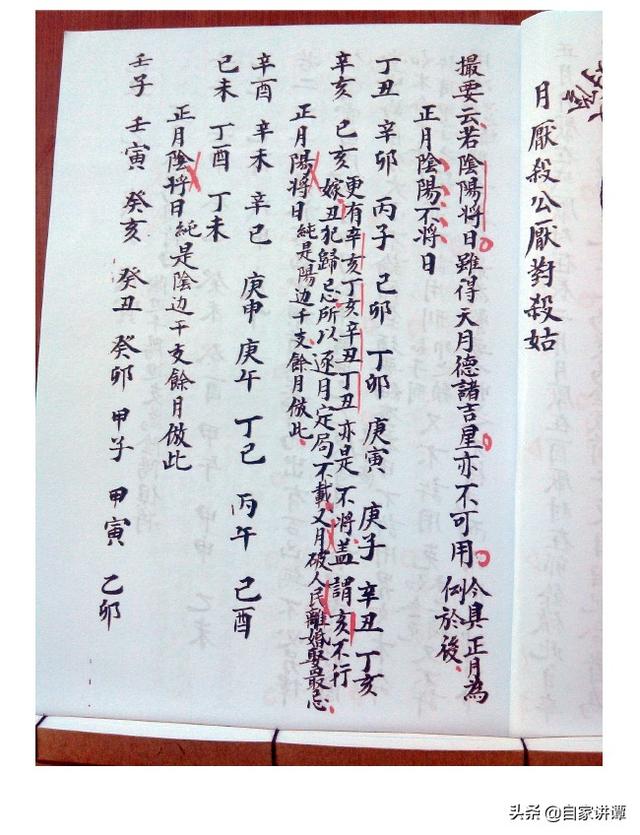 月厭殺公厭對殺姑
撮要云若陰陽將日雖得天月德諸吉星亦不可用
今具正月為
例於後
正月陰陽不將日
丁丑 辛卯 丙子 己卯 丁卯 庚寅 庚子 辛丑 丁亥
辛亥 己亥
更有辛亥丁亥辛丑丁丑亦是不將盖謂亥不行
嫁丑犯歸忌所以逐月定局不載又月破人民離婚娶最忌
正月陽將日 純是陽边干支餘月倣此
辛酉 辛未 辛巳 庚申 庚午 丁巳 丙午 己酉
己未 丁酉 丁未
正月陰將日 純是陰边干支餘月倣此
壬子 壬寅 癸亥 癸丑 癸卯 甲子 甲寅 乙卯
头条 @自家讲谭